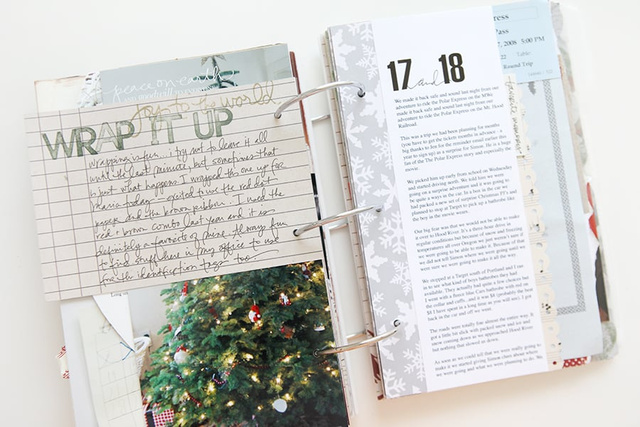 peace on earth
joy to the world
WRAP IT UP
wrapping is fun... i try not to leave it all
until the last minute, but sometimes that
is just what happens. I wrapped this one up for
mama today. i quieted twice the red dot
paper and the brown ribbon. I used the
red + brown combo last year and it is
definitely a favorite of mine. Always fun
to find stuff here in my office to use
too.
17 and 18
We made it back safe and sound last night from our
adventure to ride the Polar Express on the Mt. Hood
Railroad.
This was a trip we had been planning for months
(you have to get the tickets months in advance - a
big thanks to Jen for the reminder email earlier this
year to sign up) as a surprise for Simon. He is a huge
fan of the The Polar Express story and especially the
movie.
We picked him up early from school on Wednesday
and started driving north. We told him we were
going on a surprise adventure and it was going to
be quite a ways in the car. In a box in the car we
had packed a new set of surprise Christmas PJ's and
planned to stop at Target to pick up a bathrobe like
the boy in the movie wears.
Our big fear was that we would not be able to make
it over to Hood River. It's a three hour drive in
regular conditions but because of snow and freezing
temperatures all over Oregon we just weren't sure if
we were going to be able to make it. Because of that
we did not tell Simon where we were going until we
were sure we were going to make it all the way.
We stopped at a Target south of Portland and I ran
in to see what kind of boys bathrobes they had
available. They actually had quite a few choices but
I went with a fleece blue Cars bathrobe with red on
the collar and cuffs, and it was $8 (probably the best
$8 I have spent in a long time as you will see). I got
back in the car and off we went.
The roads were totally fine almost the entire way. It
got a little bit slick with packed snow and ice and
snow coming down as we approached Hood River,
but nothing that slowed us down.
As soon as we could tell that we were really going to
make it we started giving Simon clues about where
we were going and what we were planning to do. We
press
Pass
7, 2008 5:00 PM
22 Table
Round Trip